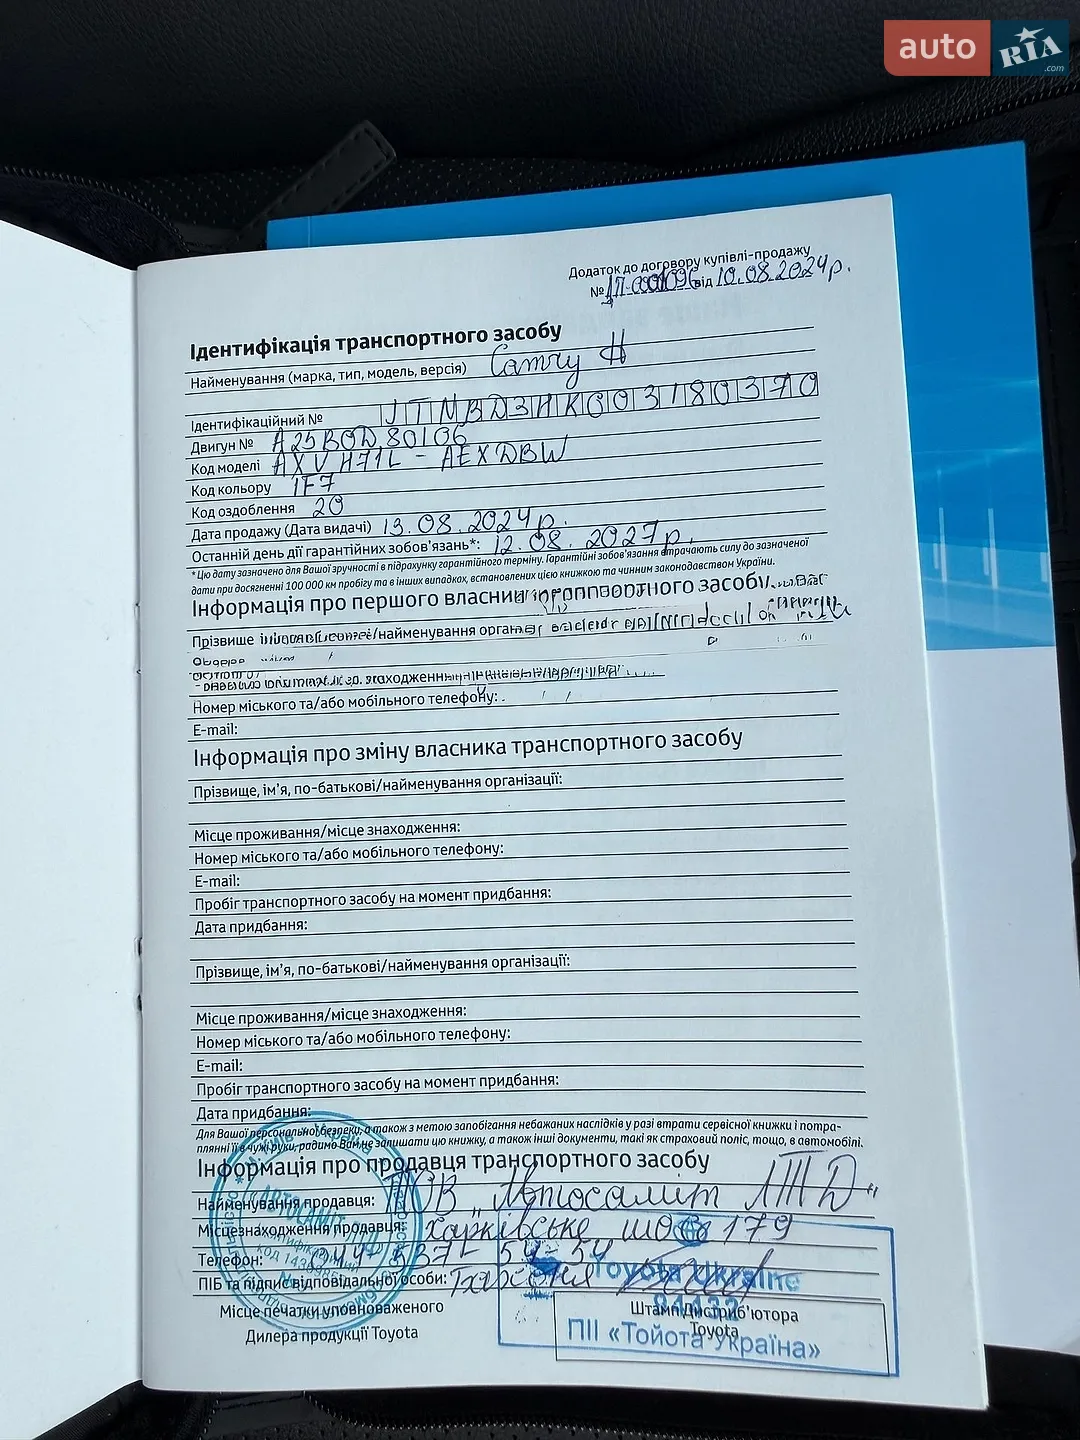 auto RIA .com
Додаток до договору купівлі-продажу
№ від 10.08.2024р.
Ідентифікація транспортного засобу
Найменування (марка, тип, модель, версія) Camry H
Ідентифікаційний № JTNBD3HK603180370
Двигун № A25BOD80106
Код моделі AXVH71L - AEXDBW
Код кольору 1F7
Код оздоблення 20
Дата продажу (Дата видачі) 13.08.2024р.
Останній день дії гарантійних зобов'язань*: 12.08.2027р.
*Цю дату зазначено для Вашої зручності в підрахунку гарантійного терміну. Гарантійні зобов'язання втрачають силу до зазначеної
дати при досягненні 100 000 км пробігу та в інших випадках, встановлених цією книжкою та чинним законодавством України.
Інформація про першого засобу
Прізвище
Номер міського та/або мобільного телефону:
E-mail:
Інформація про зміну власника транспортного засобу
Прізвище, ім'я, по-батькові/найменування організації:
Місце проживання/місце знаходження:
Номер міського та/або мобільного телефону:
E-mail:
Пробіг транспортного засобу на момент придбання:
Дата придбання:
Прізвище, ім'я, по-батькові/найменування організації:
Місце проживання/місце знаходження:
Номер міського та/або мобільного телефону:
E-mail:
Пробіг транспортного засобу на момент придбання:
Дата придбання:
Для Вашої персональної безпеки, а також з метою запобігання небажаних наслідків у разі втрати сервісної книжки і потра-
плянні її в чужі руки, радимо Вам не залишати цю книжку, а також інші документи, такі як страховий поліс, тощо, в автомобілі.
Інформація про продавця транспортного засобу
Найменування продавця: ТОВ „Автосаміт ЛТД"
Місцезнаходження продавця: Харківське шосе 179
Телефон: 044 537-54-54
ПІБ та підпис відповідальної особи:
Toyota Ukraine
Місце печатки уповноваженого
Дилера продукції Toyota
Штамп Дистриб'ютора
Toyota
ПІІ «Тойота Україна»